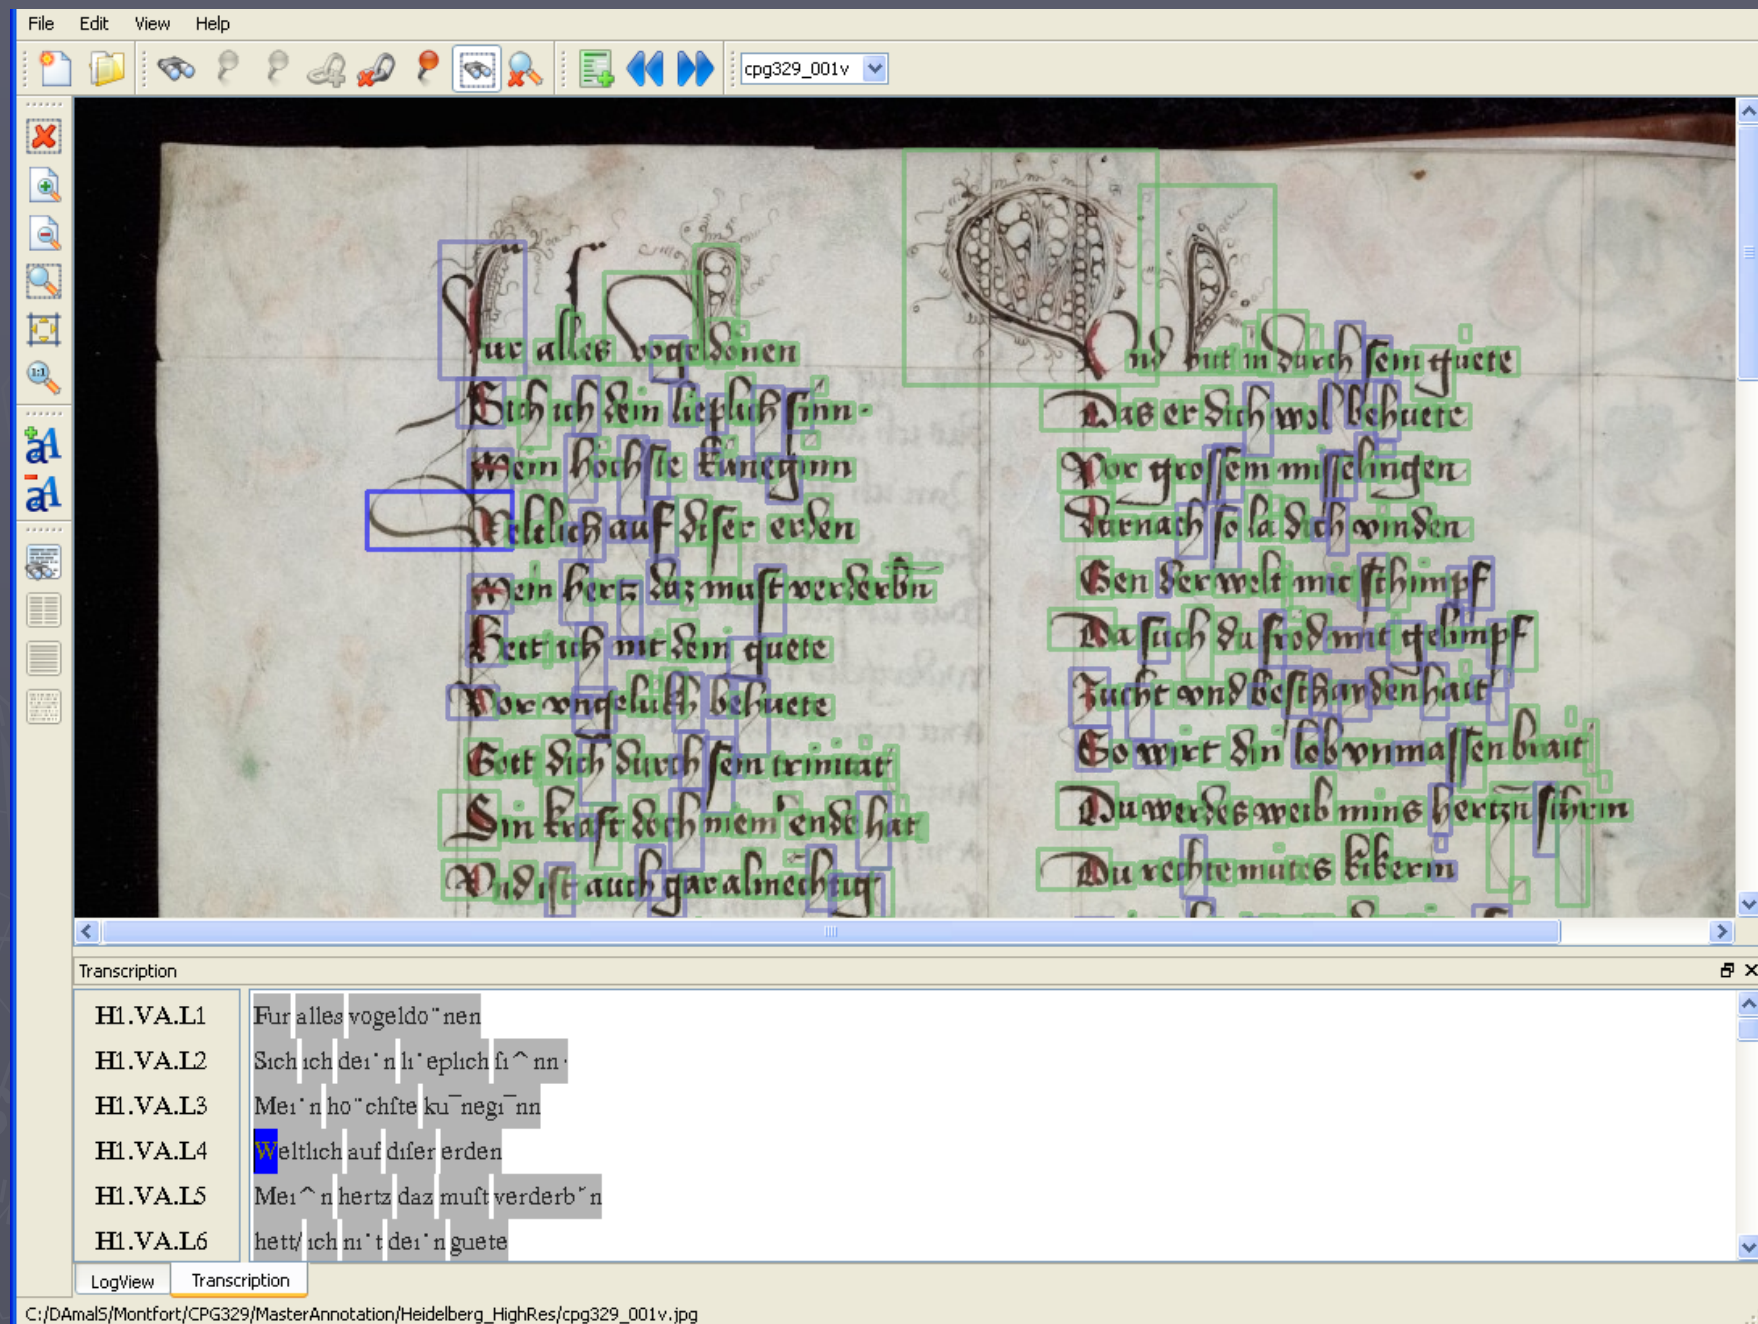 File Edit View Help
cpg329_001v
Fur alles vogel dönen
Sich ich dein lieplich ſinn·
Mein höchſte kuneginn
Weltlich auf diſer erden
Mein hertz daz muſt verderbn
Hett ich nit dein guete
Vor vngelukh behuete
Gott dich durch ſein trinitat
Sin kraft doch niem ende hat
Vnd iſt auch gar almechtig
Vnd put in durch ſein guete
Das er dich wol behuete
Vor groſſem miſſelingen
Darnach ſo la dich vinden
Gen der welt mit ſchimpf
Da ſuch du frod mit gelimpf
Zucht vnd beſchaidenhait
So wirt din lob vnmaſſen brait
Du werdes weib mins hertzn
Du rechte mutes
Transcription
H1.VA.L1 Fur alles vogeldo¨nen
H1.VA.L2 Sıch ıch deı˙n lı˙eplıch ſı^nn·
H1.VA.L3 Meı˙n ho¨chſte ku¯negı¯nn
H1.VA.L4 Weltlıch auf dıſer erden
H1.VA.L5 Meı^n hertz daz muſt verderb˜n
H1.VA.L6 hett/ ıch nı˙t deı˙n guete
LogView Transcription
C:/DAmalS/Montfort/CPG329/MasterAnnotation/Heidelberg_HighRes/cpg329_001v.jpg